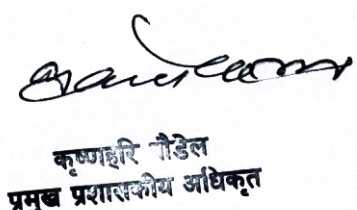 कृष्णहरि पौडेल
प्रमुख प्रशासकीय अधिकृत